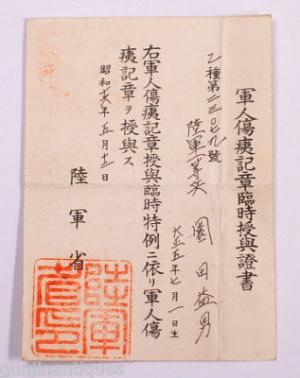 軍人傷痍記章臨時授與證書
乙種第二三〇七九號
陸軍一等兵 園田益男
大正五年七月一日生
右軍人傷痍記章授與臨時特例ニ依リ軍人傷
痍記章ヲ授與ス
昭和十六年五月十二日
陸軍省
陸軍省印
gunlinantiques